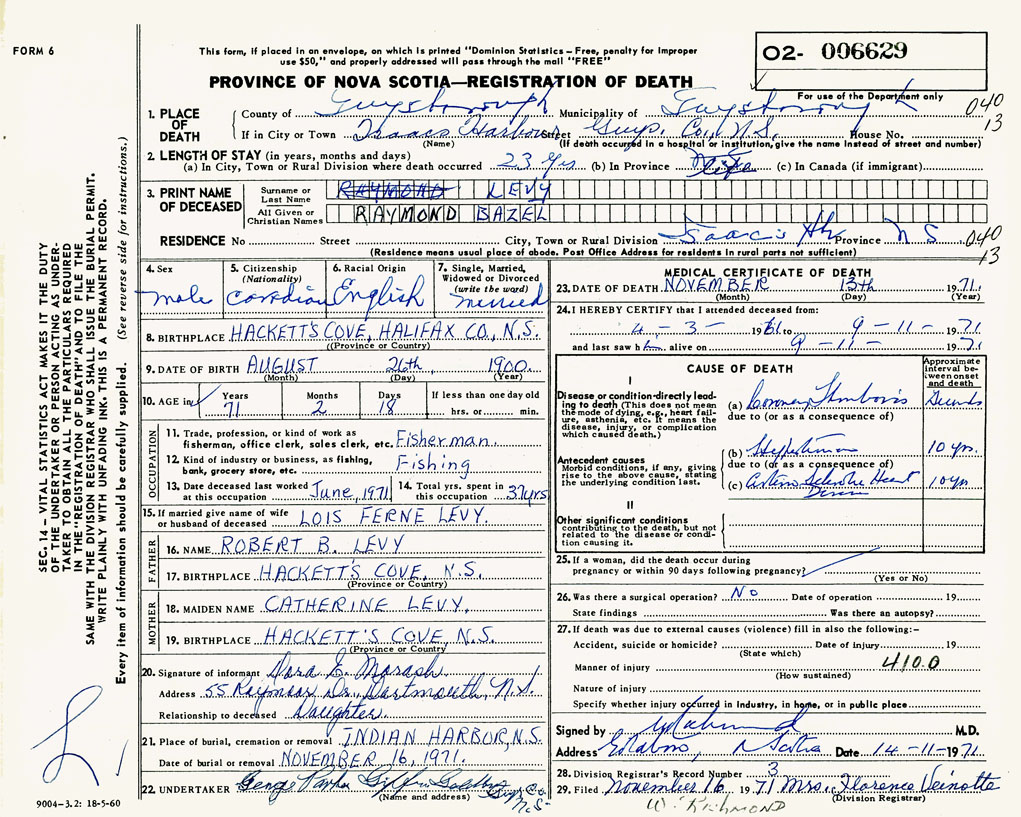 FORM 6
This form, if placed in an envelope, on which is printed "Dominion Statistics – Free, penalty for improper
use $50," and properly addressed will pass through the mail "FREE"
02- 006629
For use of the Department only
PROVINCE OF NOVA SCOTIA—REGISTRATION OF DEATH
1. PLACE OF DEATH
County of Guysborough Municipality of Guysborough
040
13
If in City or Town Isaacs Harbour Street Guys. Co., N.S. House No.
(Name) (If death occurred in a hospital or institution, give the name instead of street and number)
2. LENGTH OF STAY (in years, months and days)
(a) In City, Town or Rural Division where death occurred 23 Yrs (b) In Province life (c) In Canada (if immigrant)
3. PRINT NAME OF DECEASED
Surname or Last Name RAYMOND LEVY
All Given or Christian Names RAYMOND BAZEL
RESIDENCE No Street City, Town or Rural Division Isaac's Hbr Province N S. 040
13
(Residence means usual place of abode. Post Office Address for residents in rural parts not sufficient)
4. Sex male
5. Citizenship (Nationality) Canadian
6. Racial Origin English
7. Single, Married, Widowed or Divorced (write the word) married
8. BIRTHPLACE HACKETT'S COVE, HALIFAX CO., N.S.
((Province or Country)
9. DATE OF BIRTH AUGUST 26th, 1900.
(Month) (Day) (Year)
10. AGE in Years 71 Months 2 Days 18 If less than one day old hrs. or min.
OCCUPATION
11. Trade, profession, or kind of work as fisherman, office clerk, sales clerk, etc. Fisherman.
12. Kind of industry or business, as fishing, bank, grocery store, etc. Fishing
13. Date deceased last worked at this occupation June, 1971
14. Total yrs. spent in this occupation 37yrs
15. If married give name of wife or husband of deceased LOIS FERNE LEVY.
FATHER
16. NAME ROBERT B. LEVY
17. BIRTHPLACE HACKETT'S COVE, N.S.
(Province or Country)
MOTHER
18. MAIDEN NAME CATHERINE LEVY,
19. BIRTHPLACE HACKETT'S COVE N.S.
(Province or Country)
20. Signature of informant Dora E. Morash
Address 55 Raymoor Dr., Dartmouth, N.S.
Relationship to deceased Daughter.
21. Place of burial, cremation or removal INDIAN HARBOR, N.S.
Date of burial or removal NOVEMBER 16, 1971.
22. UNDERTAKER George Parker Goldboro Guys Co. N.S.
(Name and address)
MEDICAL CERTIFICATE OF DEATH
23. DATE OF DEATH NOVEMBER 13th 1971.
(Month) (Day) (Year)
24. I HEREBY CERTIFY that I attended deceased from:
4 - 3 - 1961 to 9 - 11 - 1971
and last saw h alive on 9 - 11 - 1971
CAUSE OF DEATH
Approximate interval between onset and death
I
Disease or condition directly leading to death (This does not mean the mode of dying, e.g., heart failure, asthenia, etc. It means the disease, injury, or complication which caused death.)
(a) Coronary Thrombosis
due to (or as a consequence of)
Antecedent causes
Morbid conditions, if any, giving rise to the above cause, stating the underlying condition last.
(b) Hypertension 10 yrs.
due to (or as a consequence of)
(c) Arterio Sclerotic Heart Disease 10 yrs
II
Other significant conditions
contributing to the death, but not related to the disease or condition causing it.
25. If a woman, did the death occur during
pregnancy or within 90 days following pregnancy?
(Yes or No)
26. Was there a surgical operation? No Date of operation 19
State findings Was there an autopsy?
27. If death was due to external causes (violence) fill in also the following:–
Accident, suicide or homicide? Date of injury 19
(State which)
Manner of injury 410.0
(How sustained)
Nature of injury
Specify whether injury occurred in industry, in home, or in public place
Signed by M.D.
Address Goldboro, N Scotia Date 14-11-1971
28. Division Registrar's Record Number 3
29. Filed November 16 1971 Mrs. Florence Veinotte
(Division Registrar)
W. RICHMOND
SEC. 14 – VITAL STATISTICS ACT MAKES IT THE DUTY
OF THE UNDERTAKER OR PERSON ACTING AS UNDER-
TAKER TO OBTAIN ALL THE PARTICULARS REQUIRED
IN THE "REGISTRATION OF DEATH" AND TO FILE THE
SAME WITH THE DIVISION REGISTRAR WHO SHALL ISSUE THE BURIAL PERMIT.
WRITE PLAINLY WITH UNFADING INK. THIS IS A PERMANENT RECORD.
Every item of information should be carefully supplied. (See reverse side for instructions.)
9004-3.2: 18-5-60